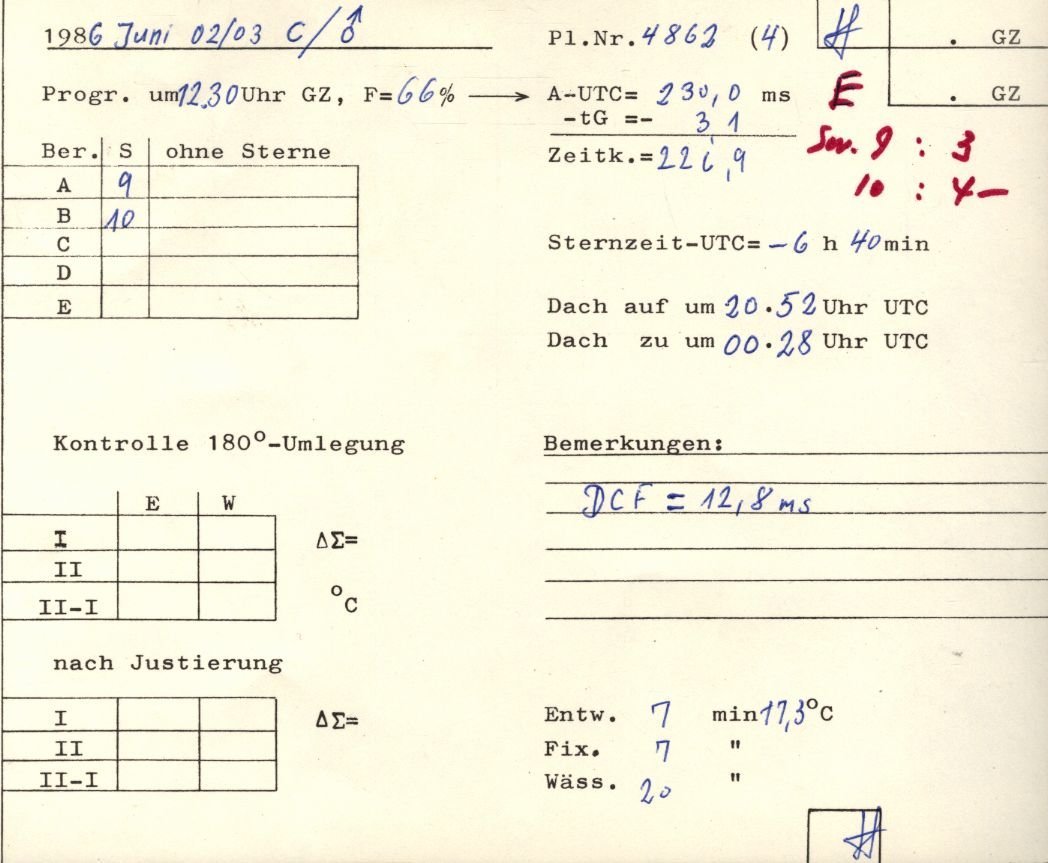 1986 Juni 02/03 C/♂
Pl.Nr. 4862 (4)
. GZ
Progr. um 12.30 Uhr GZ, F=66% → A-UTC= 230,0 ms
E
. GZ
-tG =- 3 1
Ber. S ohne Sterne
Zeitk.=22i,9
Ser. 9 : 3
A 9
10 : 4-
B 10
C
Sternzeit-UTC= -6 h 40 min
D
E
Dach auf um 20.52 Uhr UTC
Dach zu um 00.28 Uhr UTC
Kontrolle 180°-Umlegung
Bemerkungen:
E W
DCF = 12,8 ms
I ΔΣ=
II
II-I °C
nach Justierung
I ΔΣ=
II
II-I
Entw. 7 min 17,3°C
Fix. 7 "
Wäss. 20 "